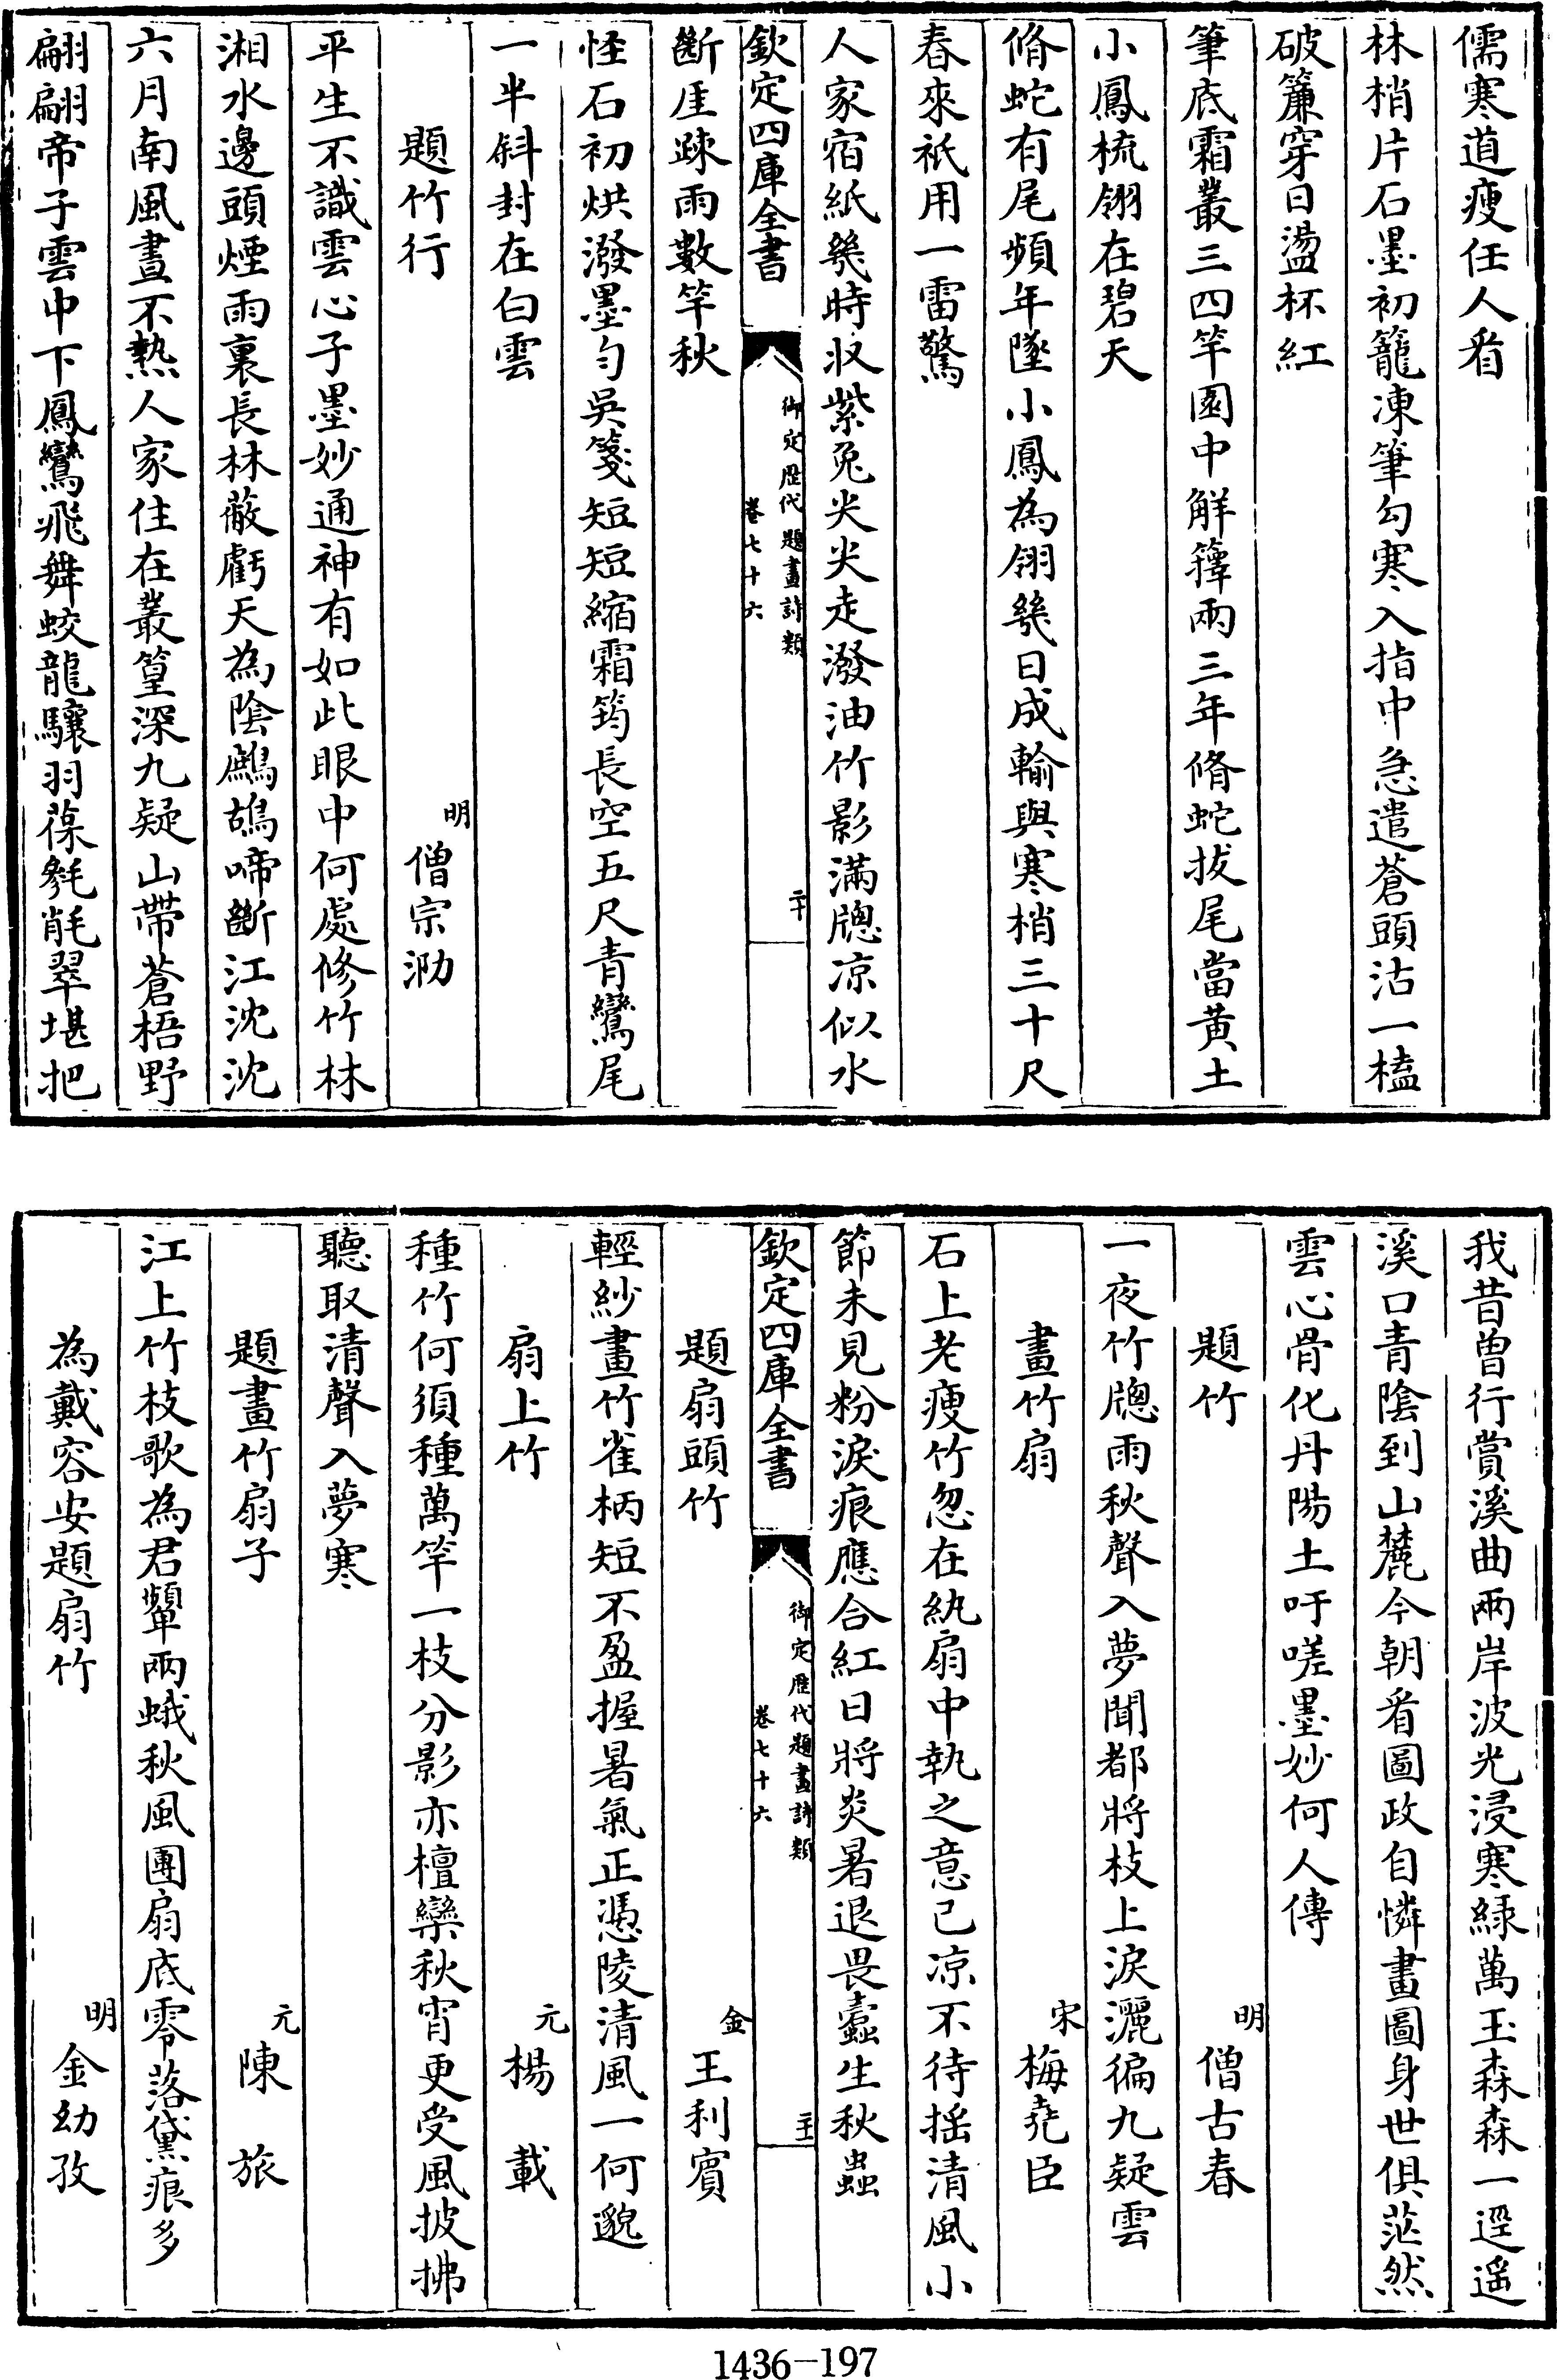 儒寒道瘦任人看
林梢片石墨初籠凍筆勾寒入指中急遣蒼頭沽一榼
破簾穿日盪杯紅
筆底霜叢三四竿園中解籜兩三年脩蛇拔尾當黄土
小鳳梳翎在碧天
脩蛇有尾頻年墜小鳳為翎幾日成輸與寒梢三十尺
春來祇用一雷驚
人家宿紙幾時収紫兔尖尖走潑油竹影滿牕凉似水
欽定四庫全書
御定歴代題畫詩類
卷七十六
二十
斷厓踈雨數竿秋
怪石初烘潑墨勻吳箋短短縮霜筠長空五尺青鸞尾
一半斜封在白雲
題竹行
明
僧宗泐
平生不識雲心子墨妙通神有如此眼中何處修竹林
湘水邊頭煙雨裏長林蔽虧天為陰鷓鴣啼斷江沈沈
六月南風晝不熱人家住在叢篁深九疑山帶蒼梧野
翩翩帝子雲中下鳳鸞飛舞蛟龍驤羽葆毿毿翠堪把
我昔曾行賞溪曲兩岸波光浸寒緑萬玉森森一逕遥
溪口青陰到山麓今朝看圖政自憐畫圖身世俱茫然
雲心骨化丹陽土吁嗟墨妙何人傳
題竹
明
僧古春
一夜竹牕雨秋聲入夢聞都將枝上淚灑徧九疑雲
畫竹扇
宋
梅堯臣
石上老瘦竹忽在紈扇中執之意已凉不待揺清風小
節未見粉淚痕應合紅日將炎暑退畏蠹生秋蟲
欽定四庫全書
御定歴代題畫詩類
卷七十六
二十一
題扇頭竹
金
王利賓
輕紗畫竹雀柄短不盈握暑氣正憑陵清風一何邈
扇上竹
元
楊載
種竹何須種萬竿一枝分影亦檀欒秋宵更受風披拂
聽取清聲入夢寒
題畫竹扇子
元
陳旅
江上竹枝歌為君顰兩蛾秋風團扇底零落黛痕多
為戴容安題扇竹
明
金幼孜
1436-197